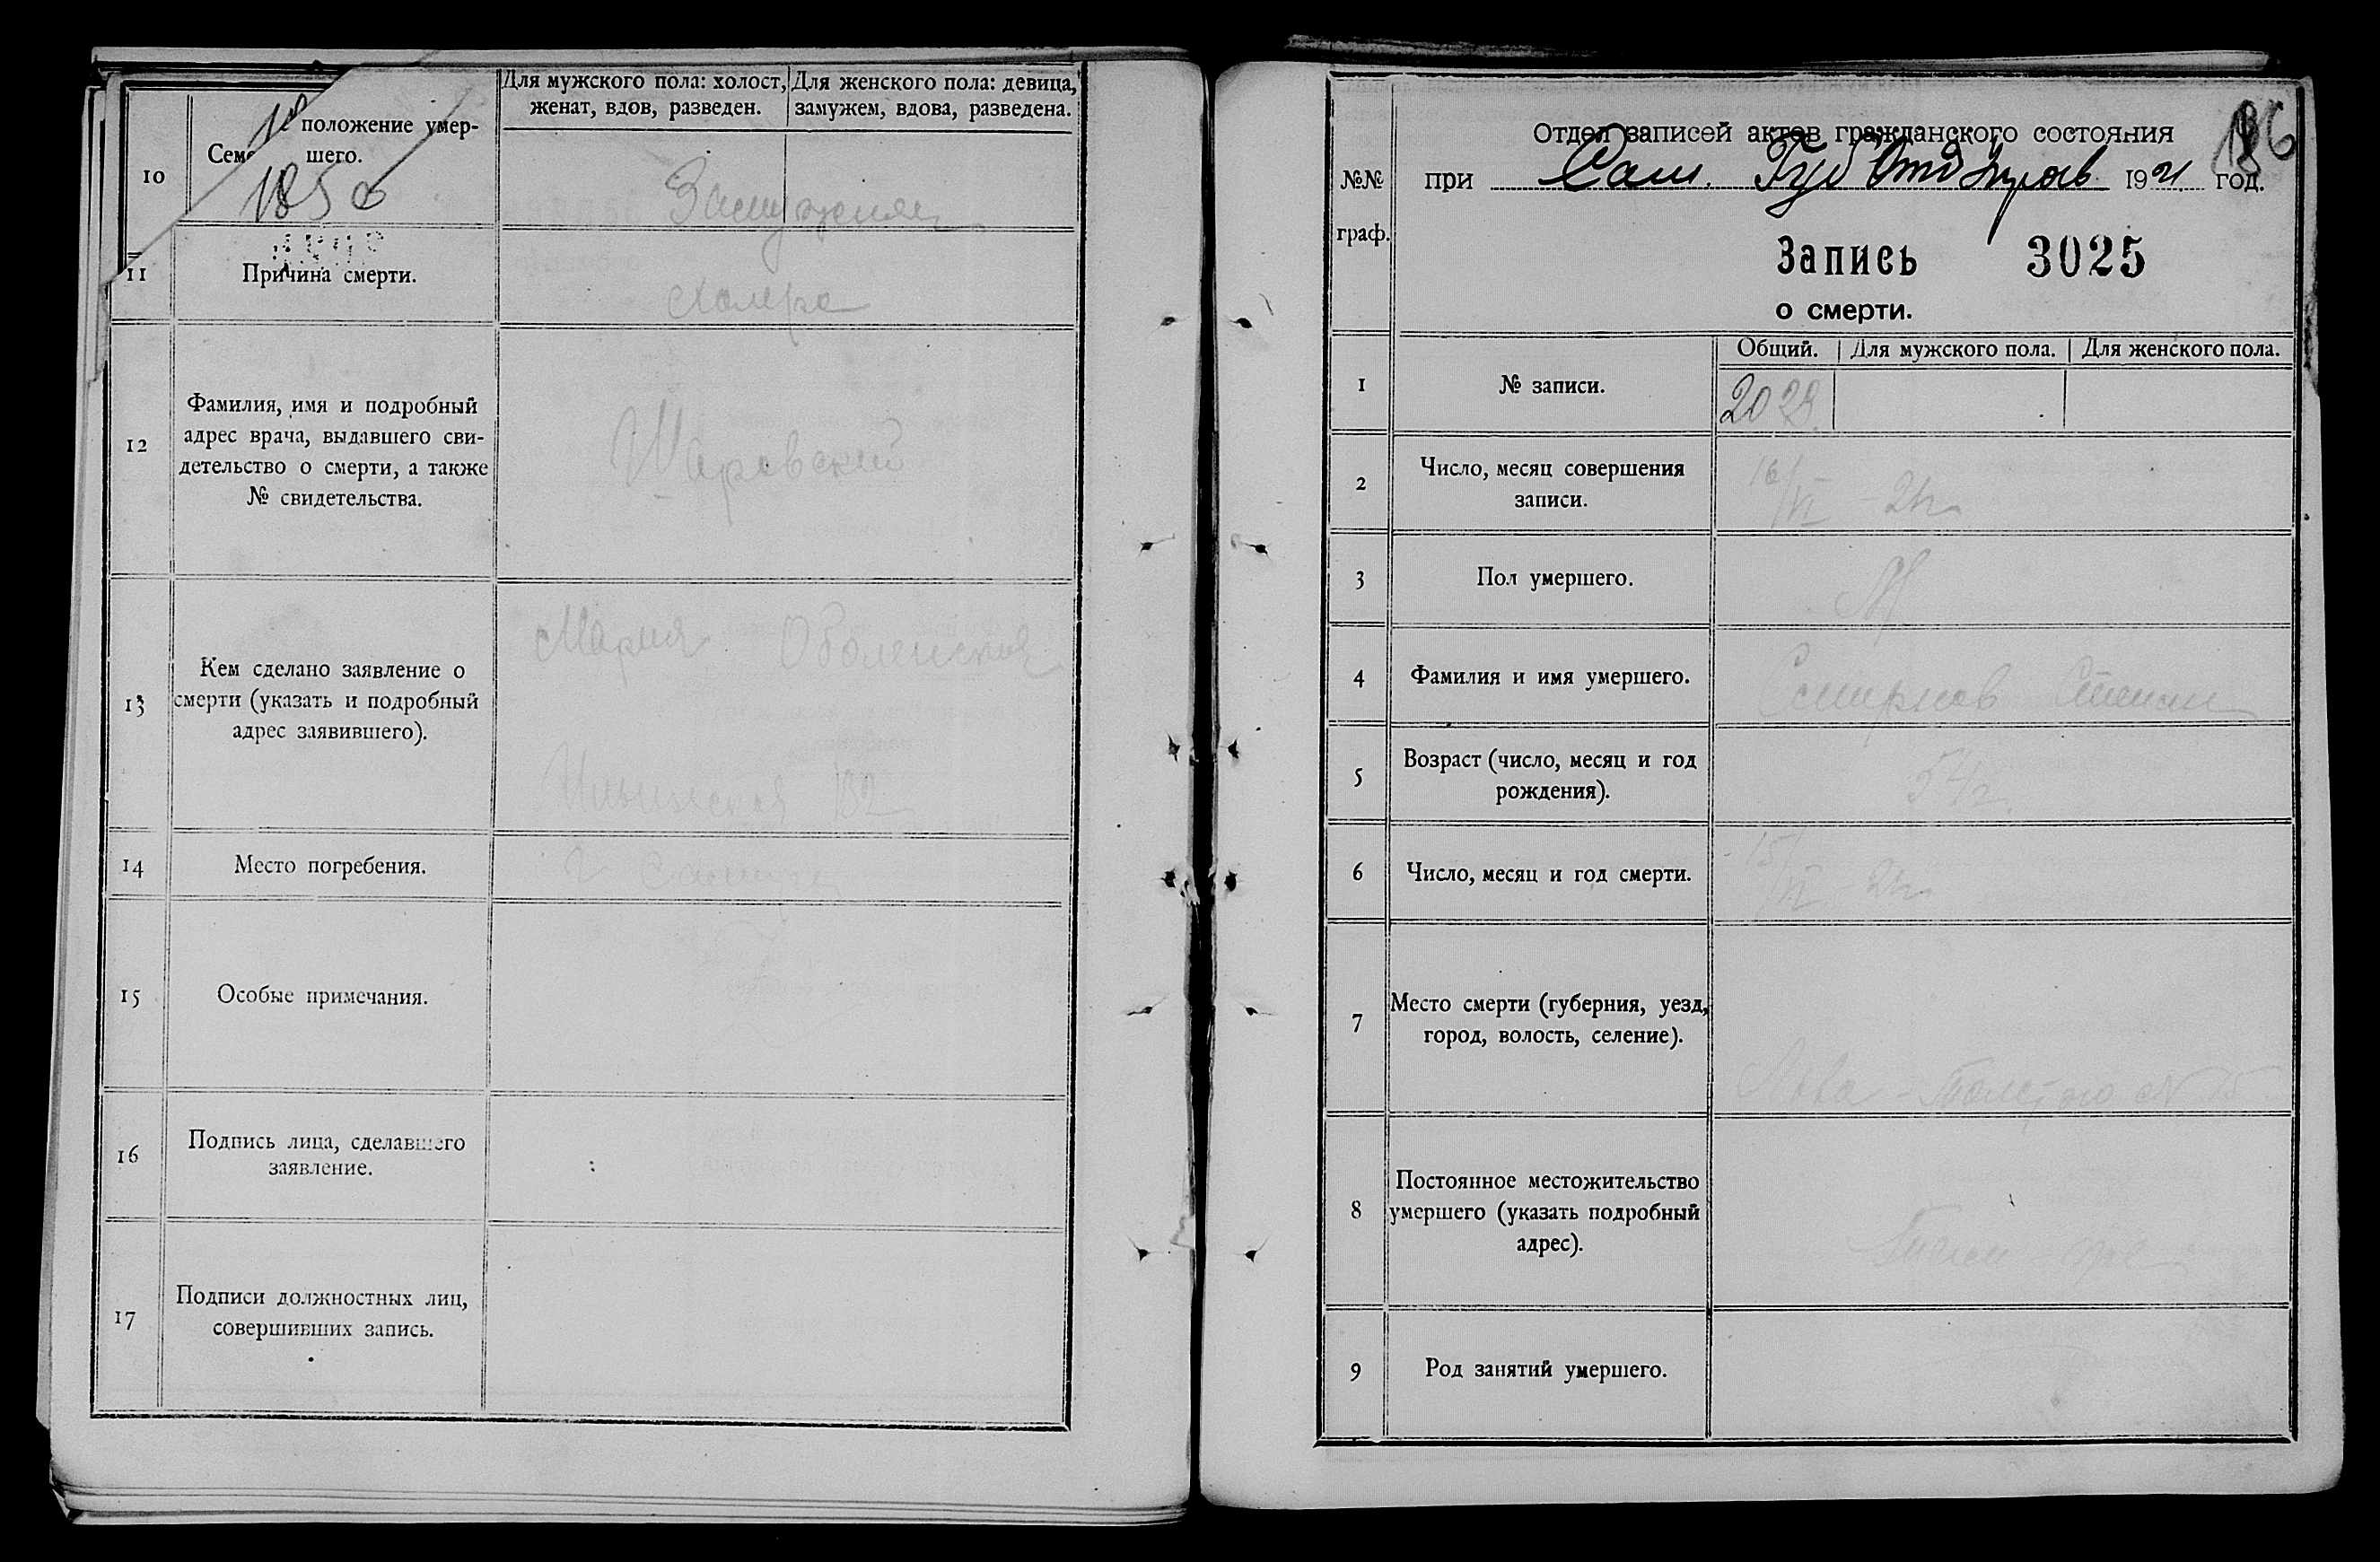 10
Сем положение умер-
шего.
185
Для мужского пола: холост,
женат, вдов, разведен.
Для женского пола: девица,
замужем, вдова, разведена.
Замужняя
11
Причина смерти.
Холера
12
Фамилия, имя и подробный
адрес врача, выдавшего сви-
детельство о смерти, а также
№ свидетельства.
Шаровский
13
Кем сделано заявление о
смерти (указать и подробный
адрес заявившего).
Мария Оболенская
Ильинская 132
14
Место погребения.
г Самара
15
Особые примечания.
16
Подпись лица, сделавшего
заявление.
17
Подписи должностных лиц,
совершивших запись.
186
№№
граф.
Отдел записей актов гражданского состояния
при Сам. Губ Отд Управ 1921 год.
Запись 3025
о смерти.
Общий. Для мужского пола. Для женского пола.
1
№ записи.
2028.
2
Число, месяц совершения
записи.
16/VI - 21г
3
Пол умершего.
М
4
Фамилия и имя умершего.
Смирнов Степан
5
Возраст (число, месяц и год
рождения).
54г.
6
Число, месяц и год смерти.
15/VI 21г
7
Место смерти (губерния, уезд,
город, волость, селение).
Льва-Толстого № 15
8
Постоянное местожительство
умершего (указать подробный
адрес).
9
Род занятий умершего.